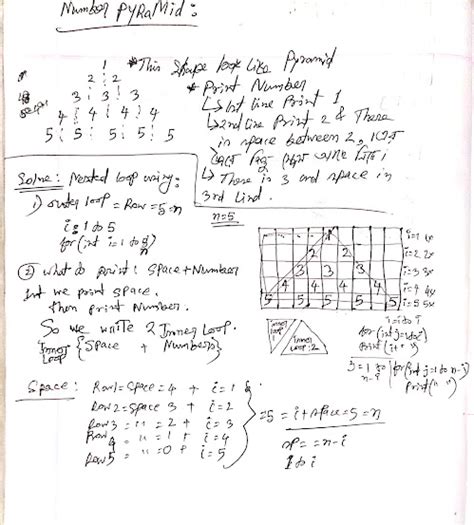 Number PyRaMid:
1 *This Shape look Like Pyramid
2 : 2 * Print Number
3 : 3 : 3 ↳ 1st line Print 1
4 : 4 : 4 : 4 ↳ 2nd line Print 2 & There
5 : 5 : 5 : 5 : 5 in space between 2,
↳ There is 3 and space in
3rd Lind.
Solve: Nested loop using:
1) outer loop = Row = 5 = n
n=5
i = 1 to 5
for (int i=1 to n)
② what do print: Space + Number
1st we print space.
then print Number.
So we write 2 Inner Loop.
Inner Loop {Space + Number}
1 i=1 1x
2 2 i=2 2x
3 3 3 i=3 3x
4 4 4 4 i=4 4x
5 5 5 5 5 i=5 5x
Inner loop 1
Inner Loop:2
for (int j=1 to i)
print(i+" ")
j=1 to n-i for(int j=1 to n-i)
print(" ")
Space: Row1=Space=4 + i=1
Row2=Space 3 + i=2
Row3= " =2 + i=3
Row4= " =1 + i=4
Row5 " =0 + i=5
=5 = i+space=5=n
sp = =n-i
1 to i